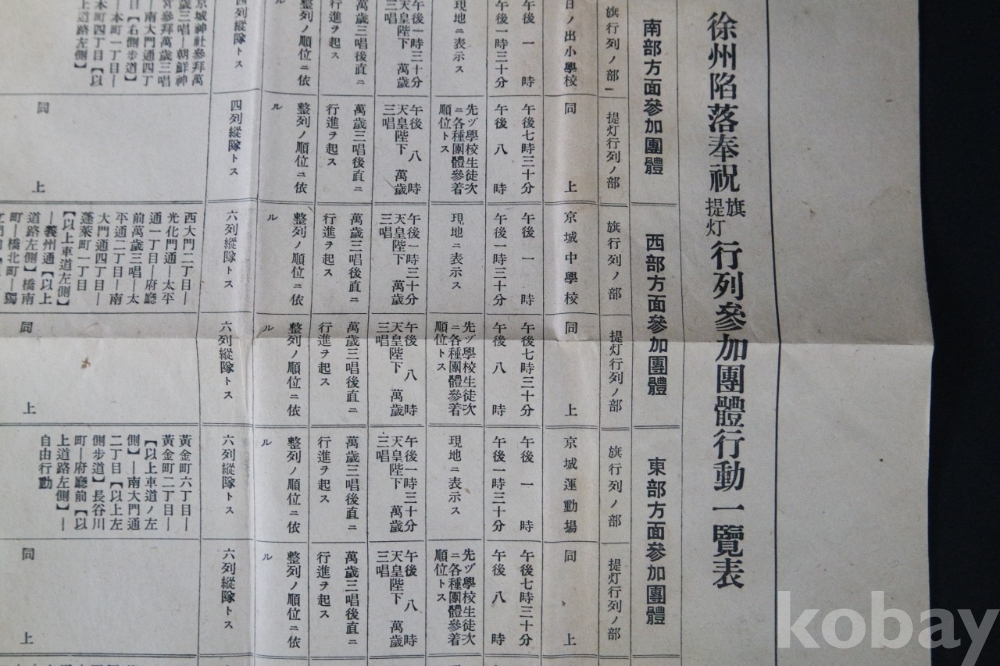 徐州陷落奉祝旗提灯行列參加團體行動一覽表
南部方面參加團體
西部方面參加團體
東部方面參加團體
旗行列ノ部
提灯行列ノ部
旗行列ノ部
提灯行列ノ部
旗行列ノ部
提灯行列ノ部
日ノ出小學校
同上
京城中學校
同上
京城運動場
同上
午後一時
午後一時三十分
午後七時三十分
午後八時
午後一時
午後一時三十分
午後七時三十分
午後八時
午後一時
午後一時三十分
午後七時三十分
午後八時
現地ニ表示ス
先ヅ學校生徒次
ニ各種團體參着
順位トス
現地ニ表示ス
先ヅ學校生徒次
ニ各種團體參着
順位トス
現地ニ表示ス
先ヅ學校生徒次
ニ各種團體參着
順位トス
午後一時三十分
天皇陛下 萬歲
三唱
午後八時
天皇陛下 萬歲
三唱
午後一時三十分
天皇陛下 萬歲
三唱
午後八時
天皇陛下 萬歲
三唱
午後一時三十分
天皇陛下 萬歲
三唱
午後八時
天皇陛下 萬歲
三唱
萬歲三唱後直ニ
行進ヲ起ス
萬歲三唱後直ニ
行進ヲ起ス
萬歲三唱後直ニ
行進ヲ起ス
萬歲三唱後直ニ
行進ヲ起ス
萬歲三唱後直ニ
行進ヲ起ス
萬歲三唱後直ニ
行進ヲ起ス
整列ノ順位ニ依
ル
整列ノ順位ニ依
ル
整列ノ順位ニ依
ル
整列ノ順位ニ依
ル
整列ノ順位ニ依
ル
整列ノ順位ニ依
ル
四列縱隊トス
四列縱隊トス
六列縱隊トス
六列縱隊トス
六列縱隊トス
六列縱隊トス
京城神社參拜萬
歲三唱―朝鮮神
宮參拜萬歲三唱
―南大門通四丁
目【右側步道】
―本町一丁目―
本町四丁目【以
上道路左側】
同上
西大門二丁目―
光化門通―太平
通一丁目―府廳
前萬歲三唱―太
平通二丁目―南
大門通四丁目―
蓬萊町一丁目
【以上車道左側】
―義州通【以上
道路左側】橋南
町―橋北町―
同上
黃金町六丁目―
黃金町二丁目―
【以上車道ノ左
側】―南大門通
二丁目【以上左
側步道】長谷川
町―府廳前【以
上道路左側】―
自由行動
同上
kobay